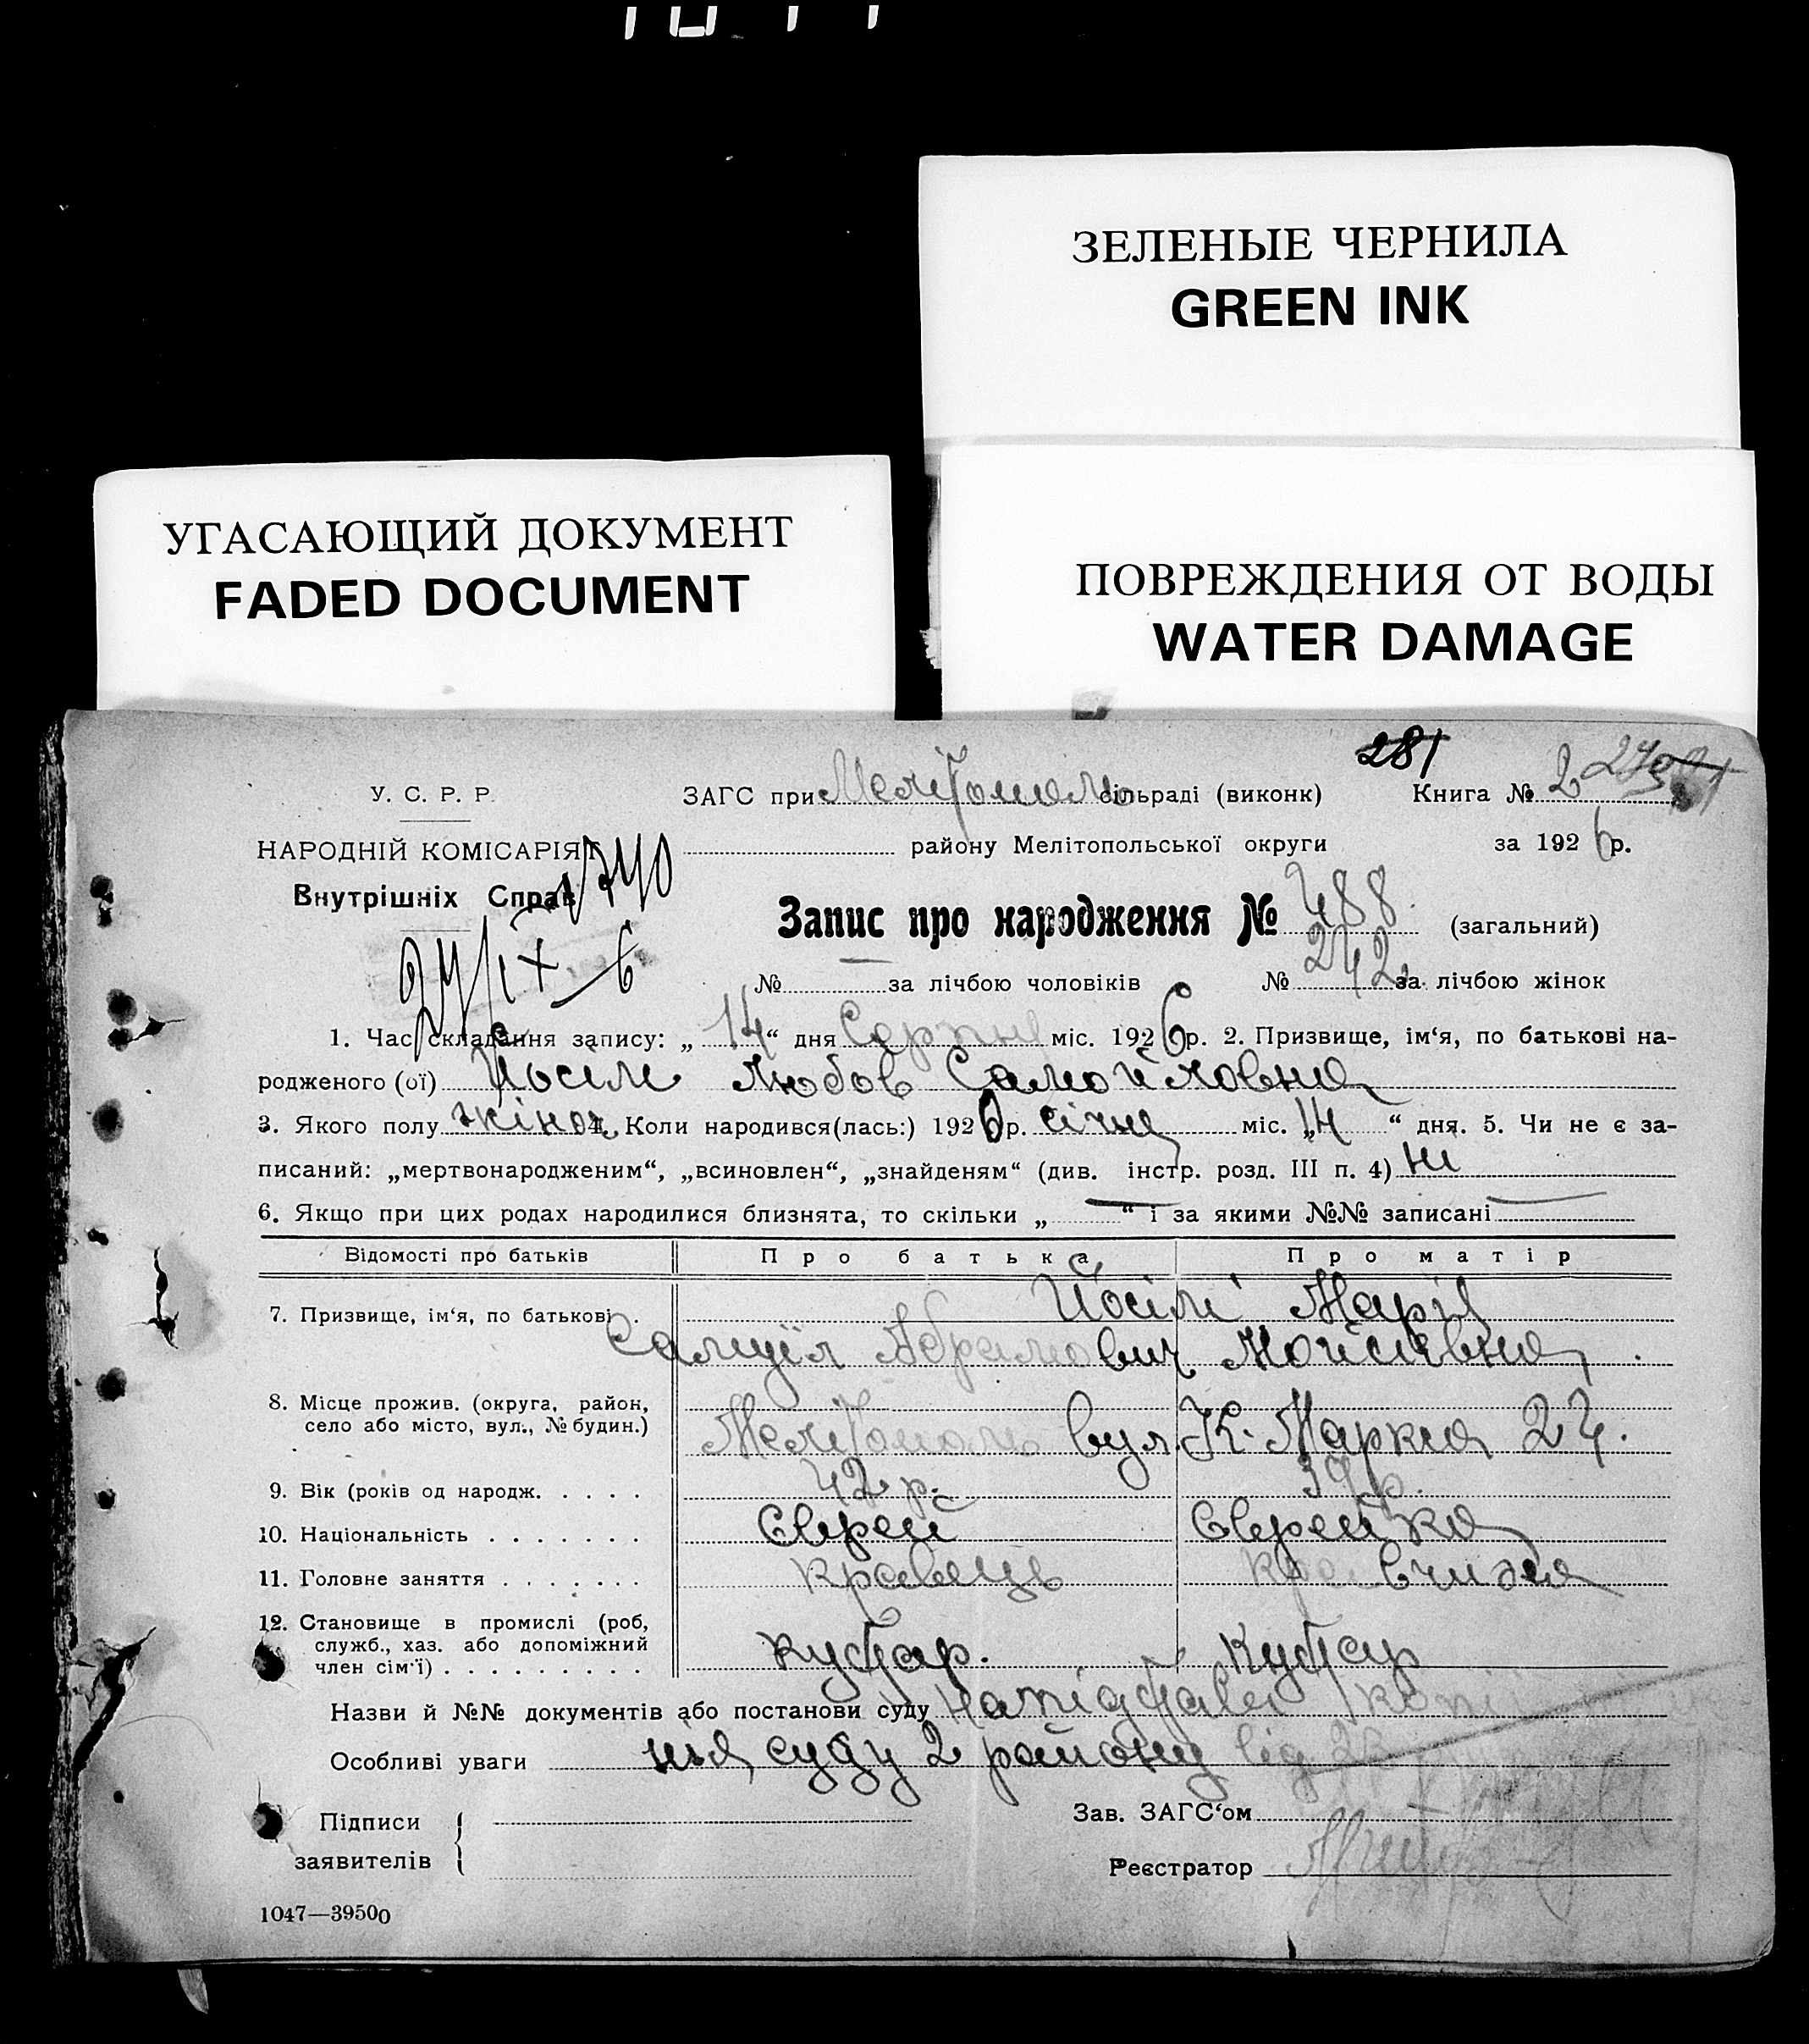 ЗЕЛЕНЫЕ ЧЕРНИЛА
GREEN INK
УГАСАЮЩИЙ ДОКУМЕНТ
FADED DOCUMENT
ПОВРЕЖДЕНИЯ ОТ ВОДЫ
WATER DAMAGE
281
У. С. Р. Р.
ЗАГС при Мелітополь сільраді (виконк)
Книга № 2
НАРОДНІЙ КОМІСАРІЯТ
району Мелітопольської округи
за 1926 р.
Внутрішніх Справ
Запис про народження № 488. (загальний)
№ за лічбою чоловіків № 242 за лічбою жінок
1. Час складання запису: „14“ дня Серпня міс. 1926 р. 2. Призвище, ім‘я, по батькові на-
родженого (ої) Йосім Любов Самойловна
3. Якого полу жіноч. 4. Коли народився(лась:) 1926 р. січня міс. „14“ дня. 5. Чи не є за-
писаний: „мертвонародженим“, „всиновлен“, „знайденям“ (див. інстр. розд. III п. 4) ні
6. Якщо при цих родах народилися близнята, то скільки „—“ і за якими №№ записані —
Відомості про батьків Про батька Про матір
7. Призвище, ім‘я, по батькові . Йосім Марія
Самуїл Абрамович Мойсієвна
8. Місце прожив. (округа, район,
село або місто, вул., № будин.) Мелітополь вул. К. Маркса 24.
9. Вік (років од народж. . . . . 42 р. 39 р.
10. Національність . . . . . . . Єврей Єврейка
11. Головне заняття . . . . . . . кравець кравчиха
12. Становище в промислі (роб,
служб., хаз. або допоміжний
член сім‘ї) . . . . . . . . . кустар. Кустар
Назви й №№ документів або постанови суду На підставі копії
Особливі уваги ня суду 2 району від
Підписи
заявителів
Зав. ЗАГС‘ом
Реєстратор
1047—39500